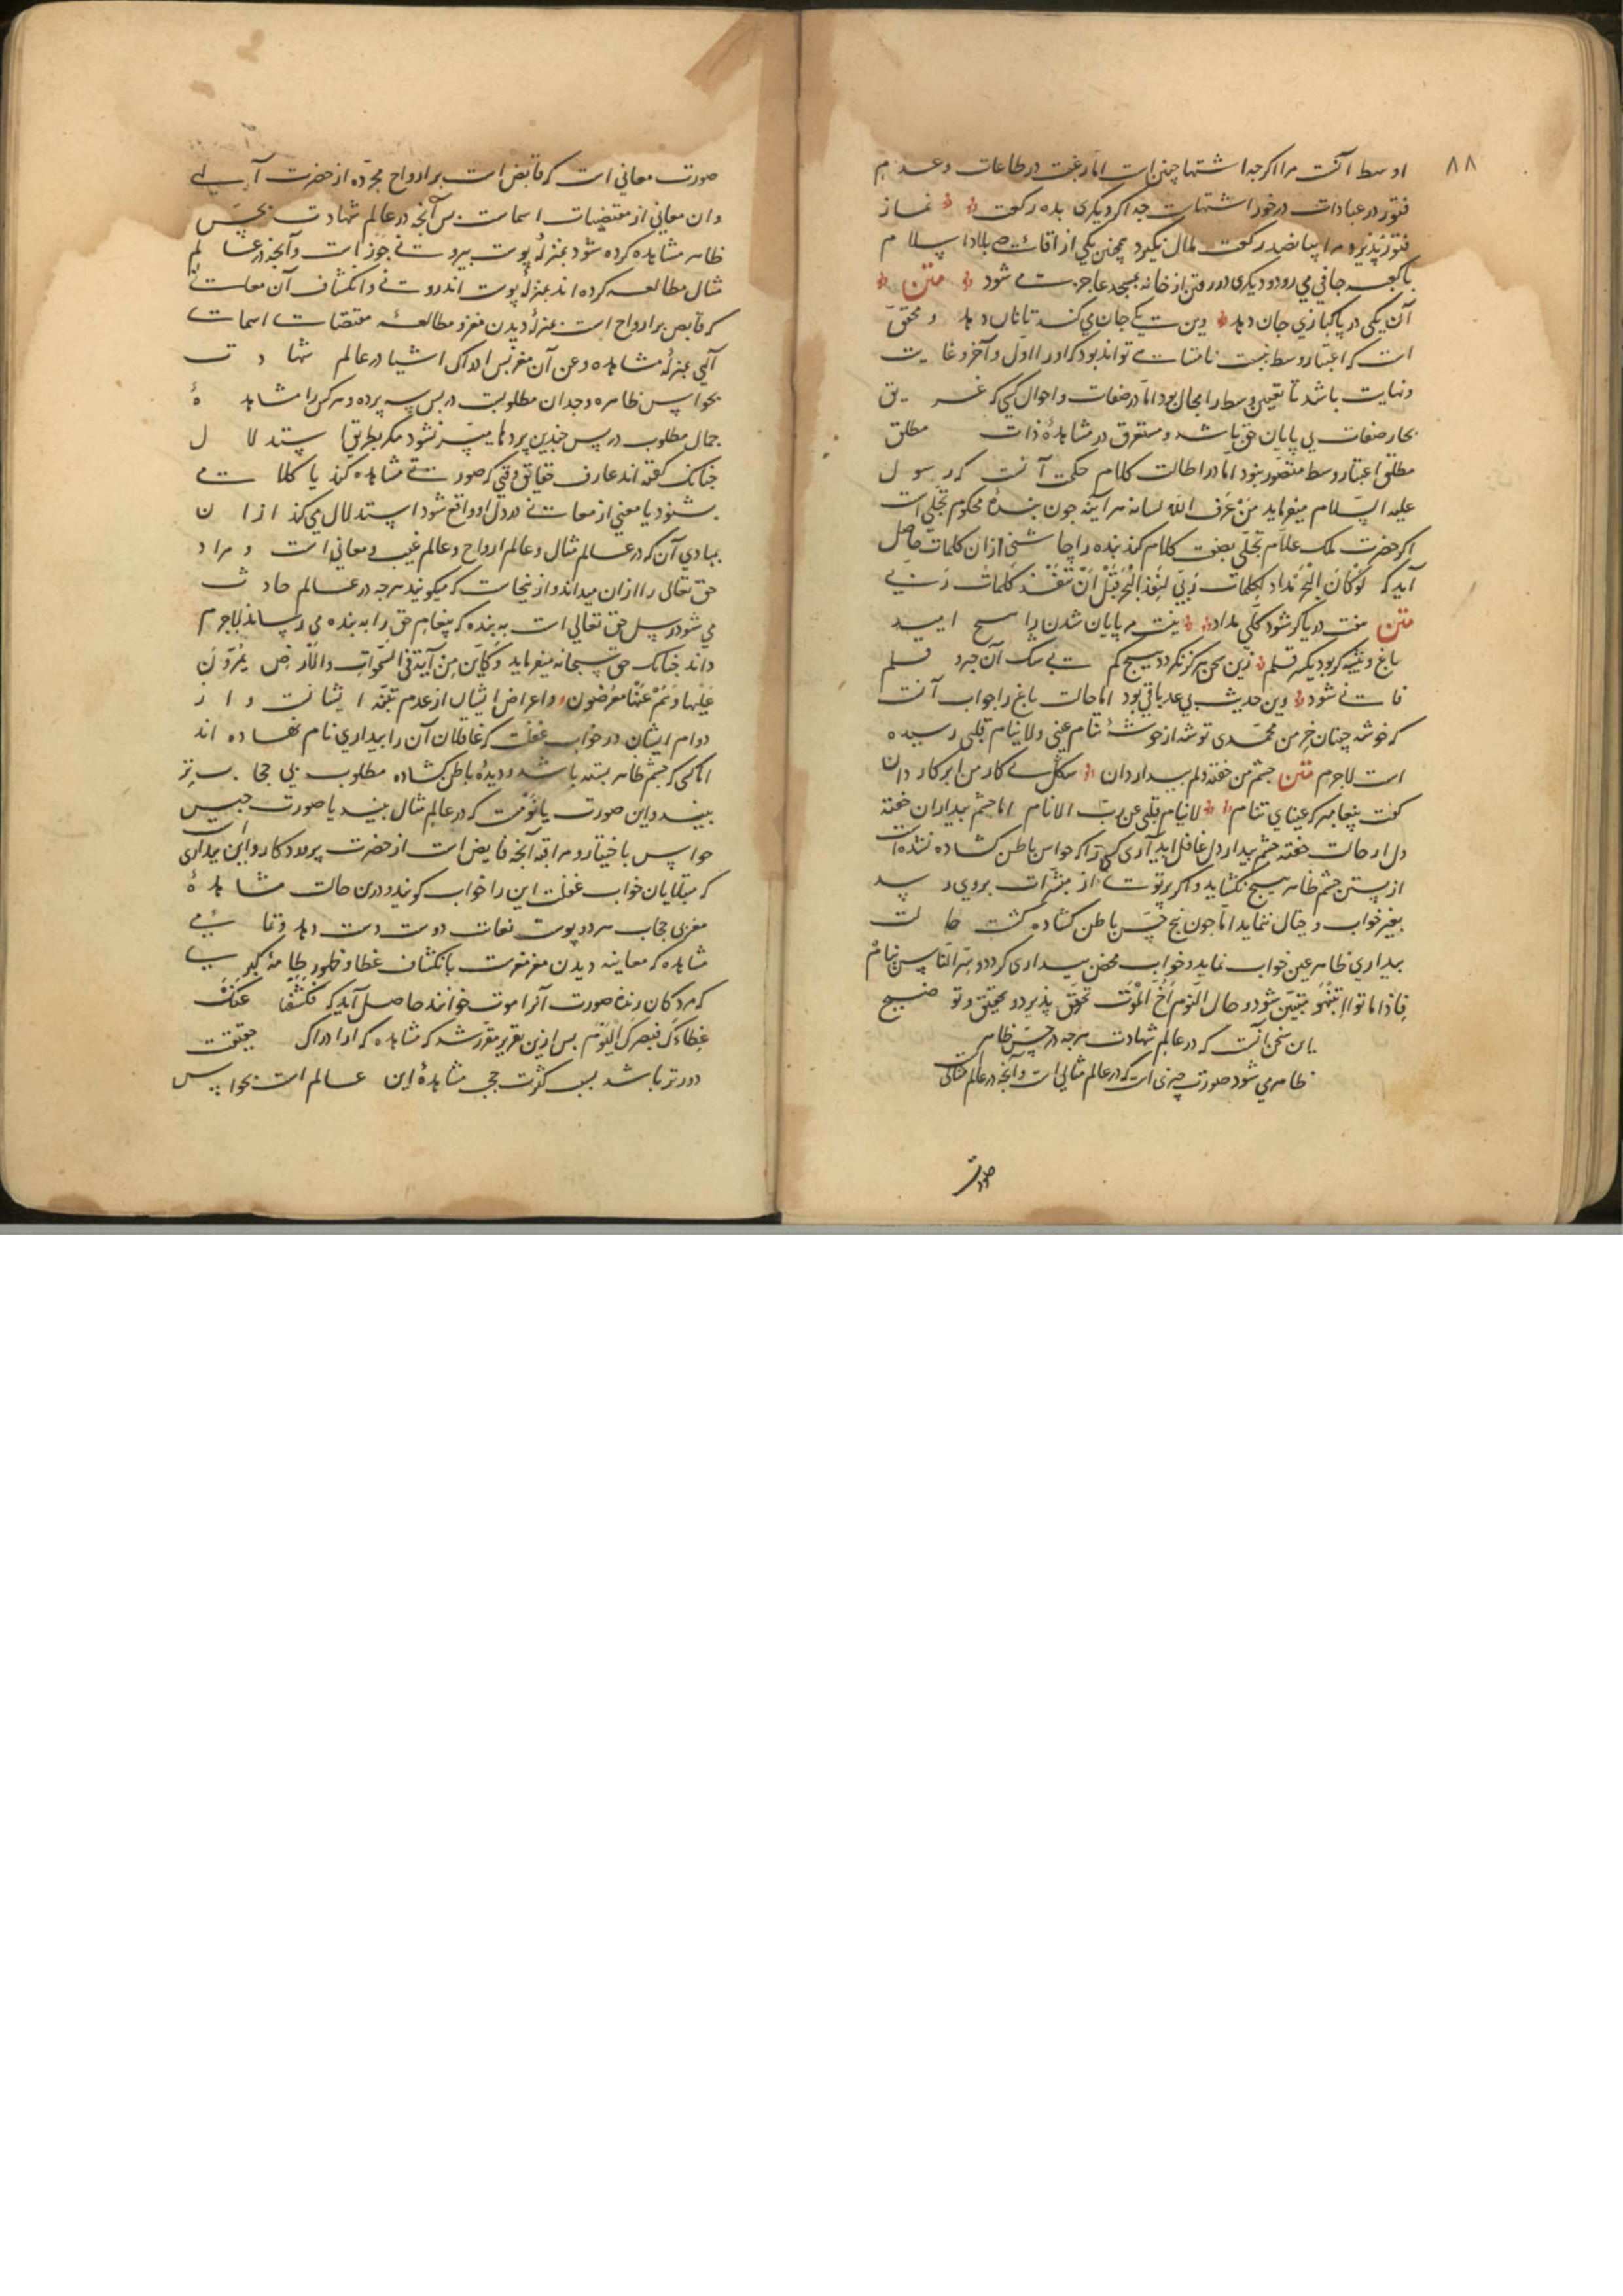 ۸۸
اوسط آنست مرا اگرچه اشتها چنین است اما رغبت در طاعات و عدم
فتور در عبادات در خور اشتهاست چه اگر دیگری بده رکعت نماز
فتور پذیرد مرا پیاپی صد رکعت ملال نگیرد همچنین یکی از اقاصی بلاد اسلام
تا کعبه حافی می رود و دیگری در رفتن از خانه بمسجد عاجز می شود متن
آن یکی در پاکبازی جان دهد وین یکی جان می کند تا نان دهد و محقق
است که اعتبار وسط بنسبت نامتناهی تواند بود که او را اول و آخر و غایت
و نهایت باشد تا تعیین وسط را مجال بود اما در صفات و احوال کسی که غریق
بحار صفات بی پایان حق باشد و مستغرق در مشاهدهٔ ذات مطلق
مطلقا اعتبار وسط متصور نبود اما در اطالت کلام حکمت آنست که رسول
علیه السلام میفرماید مَنْ عَرَفَ اللّه لسانه هر آینه چون بندهٔ محکوم تجلی است
اگر حضرت ملک علام تجلی بصفت کلام کند بنده را چاشنی ازان کلمات حاصل
آید که لَوْ كَانَ الْبَحْرُ مِدَادًا لِكَلِمَاتِ رَبِّي لَنَفِدَ الْبَحْرُ قَبْلَ أَنْ تَنْفَدَ كَلِمَاتُ رَبِّي
متن هفت دریا گر شود کلی مداد نیست مر پایان شدن را هیچ امید
باغ و بیشه گر بود یکسر قلم زین سخن هرگز نگردد هیچ کم آن حبر و قلم
فانی شود وین حدیث بی عدد باقی بود اما حالت باغ را جواب آنست
که خوشه چینان خرمن محمدی توشه از خوشهٔ تنام عینی ولا ینام قلبی رسیده
است لاجرم متن چشم من خفته دلم بیدار دان شکل بی کار من ابر کار دان
گفت پیغامبر که عینای تنام لا ینام قلبی عن ربّ الانام اما چشم بیداران خفته
دل از حالت خفته چشم بیدار دل غافل اید آری کسی را که حواس باطن کشاده نشده است
از بستن چشم ظاهر هیچ نگشاید و اگر پرتوی از مبشرات بروی رسد
بغیر خواب و خیال ننماید اما چون پنج حس باطن کشاده گشت حالت
بیداری ظاهر عین خواب نماید و خواب محض بیداری گردد و سرّ النّاس نیام
فاذا ماتوا انتبهو متبین شود و حال النّوم اخ الموت تحقق پذیرد و تحقیق و توضیح
این سخن آنست که در عالم شهادت هرچه در حسّ ظاهر
ظاهر می شود صورت چیزی است که در عالم مثالی است و آنچه در عالم مثالی
صورت
صورت معانی است که فایض است بر ارواح مجرده از حضرت آلهی
وان معانی از مقتضیات اسماست پس آنچه در عالم شهادت بحسّ
ظاهر مشاهده کرده شود بمنزلهٔ پوست بیرونی جوز است و آنچه در عالم
مثال مطالعه کرده اند بمنزلهٔ پوست اندرونی و انکشاف آن معانی
که فایض بر ارواح است بمنزلهٔ دیدن مغز و مطالعهٔ مقتضیات اسمات
آلهی بمنزلهٔ مشاهده و عن آن مغز پس ادراک اشیا در عالم شهادت
بحواس ظاهره وجدان مطلوبست در پس سه پرده و هرکس را مشاهدهٔ
جمال مطلوب در پس چندین پردها میسر نشود مگر بطریق استدلال
چنانک گفته اند عارف حقایق وقتی که صورتی مشاهده کند یا کلامی
بشنود یا معنی از معانی در دل او واقع شود استدلال می کند ازان
بمبادی آن که در عالم مثال و عالم ارواح و عالم غیب و معانی است و مراد
حق تعالی را ازان میداند و ازینجاست که میگویند هرچه در عالم حادث
می شود رسل حق تعالی است به بنده که پیغام حق را به بنده می رساند لاجرم
داند چنانک حق سبحانه میفرماید وَكَأَيِّنْ مِنْ آيَةٍ فِي السَّمَوَاتِ وَالْأَرْضِ يَمُرُّونَ
عَلَيْهَا وَهُمْ عَنْهَا مُعْرِضُونَ و اعراض ایشان از عدم تنبّه ایشانست و از
دوام ایشان در خواب غفلت که غافلان آن را بیداری نام نهاده اند
اما کسی که چشم ظاهر بسته باشد و دیدهٔ باطن کشاده مطلوب بی حجاب تر
بیند و این صورت یا نومست که در عالم مثال بیند یا صورت حبس
حواس باختیار و مراقبه آنچه فایض است از حضرت پروردگار و این بیداری است
که مبتلایان خواب غفلت این را خواب گویند و درین حالت مشاهدهٔ
مغز بی حجاب هر دو پوست نعات دوست دست دهد و تمامی
مشاهده که معاینه دیدن مغز مغزست بانکشاف غطا و ظهور طامهٔ کبری
که مردگان زنده صورت آنرا موت خوانند حاصل آید که فَكَشَفْنَا عَنْكَ
غِطَاءَكَ فَبَصَرُكَ الْيَوْمَ پس ازین تقریر مقرر شد که مشاهده که او را ادراک حقیقت
دورتر باشد بسبب کثرت حجب مشاهدهٔ این عالم است بحواس